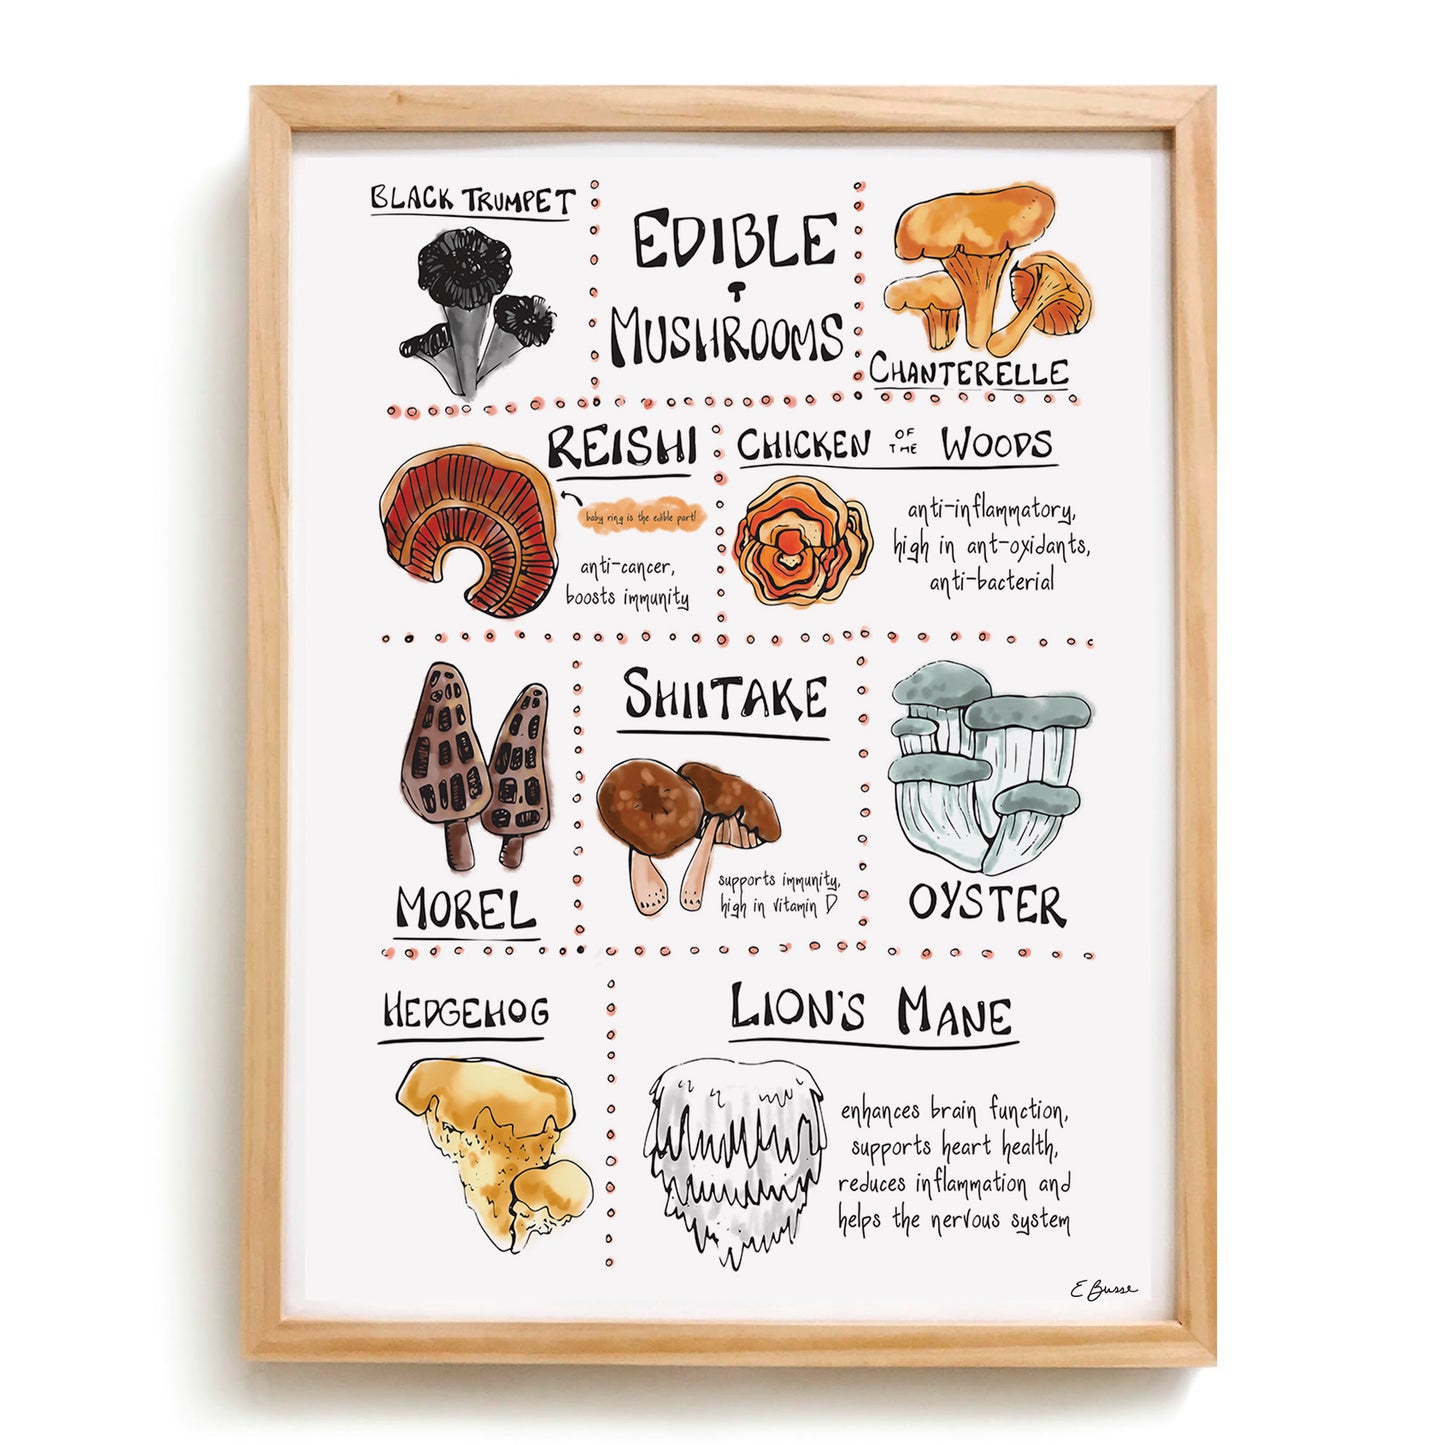 BLACK TRUMPET
EDIBLE
MUSHROOMS
CHANTERELLE
REISHI
baby ring is the edible part!
anti-cancer,
boosts immunity
CHICKEN OF THE WOODS
anti-inflammatory,
high in ant-oxidants,
anti-bacterial
MOREL
SHIITAKE
supports immunity,
high in vitamin D
OYSTER
HEDGEHOG
LION'S MANE
enhances brain function,
supports heart health,
reduces inflammation and
helps the nervous system
E Busse